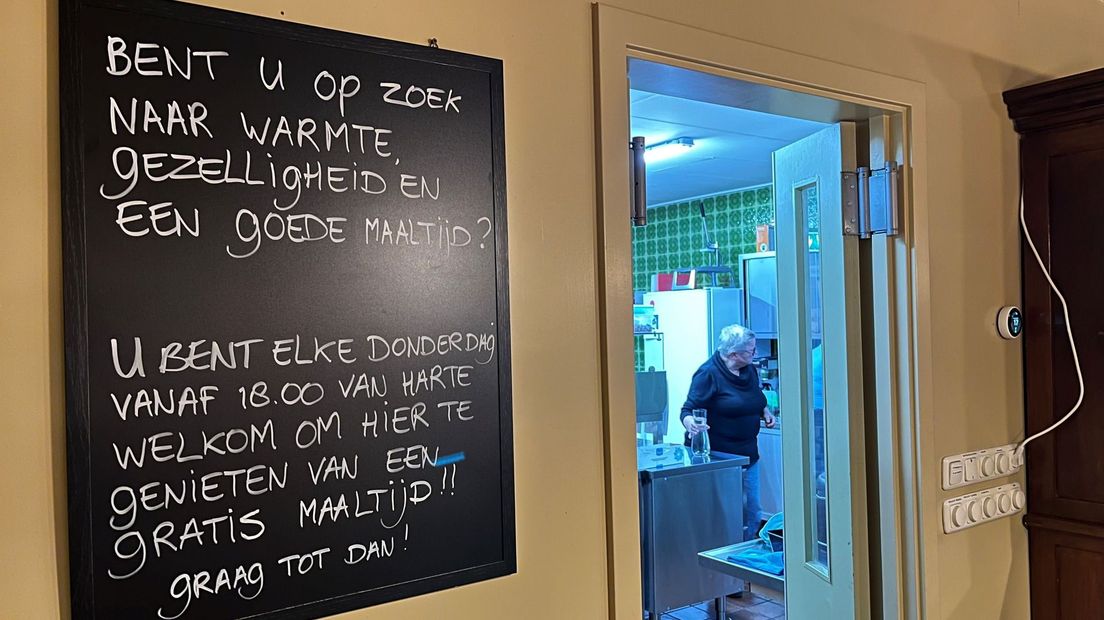 BENT U OP ZOEK
NAAR WARMTE,
GEZELLIGHEID EN
EEN GOEDE MAALTIJD?
U BENT ELKE DONDERDAG
VANAF 18.00 VAN HARTE
WELKOM OM HIER TE
GENIETEN VAN EEN
GRATIS MAALTIJD!!
GRAAG TOT DAN!